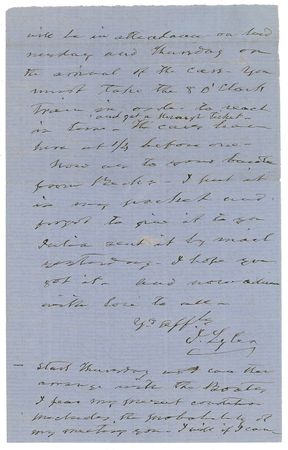 will be in attendance on Wed
nesday and Thursday on
the arrival of the cars. You
must take the 8 O'Clock
Train in order to reach
and get a through ticket -
in time. The cars leave
here at 1/4 before one -
Now as to your
from I put it
in my pocket and
forgot to give it to you
Julia sent it by mail
yesterday. I hope you
got it. And now adieu
with love to all -
Yr Affly
J. Tyler
start Thursday
arrange with the
I fear my present condition
precludes the probability of
my meeting you. I will if I can